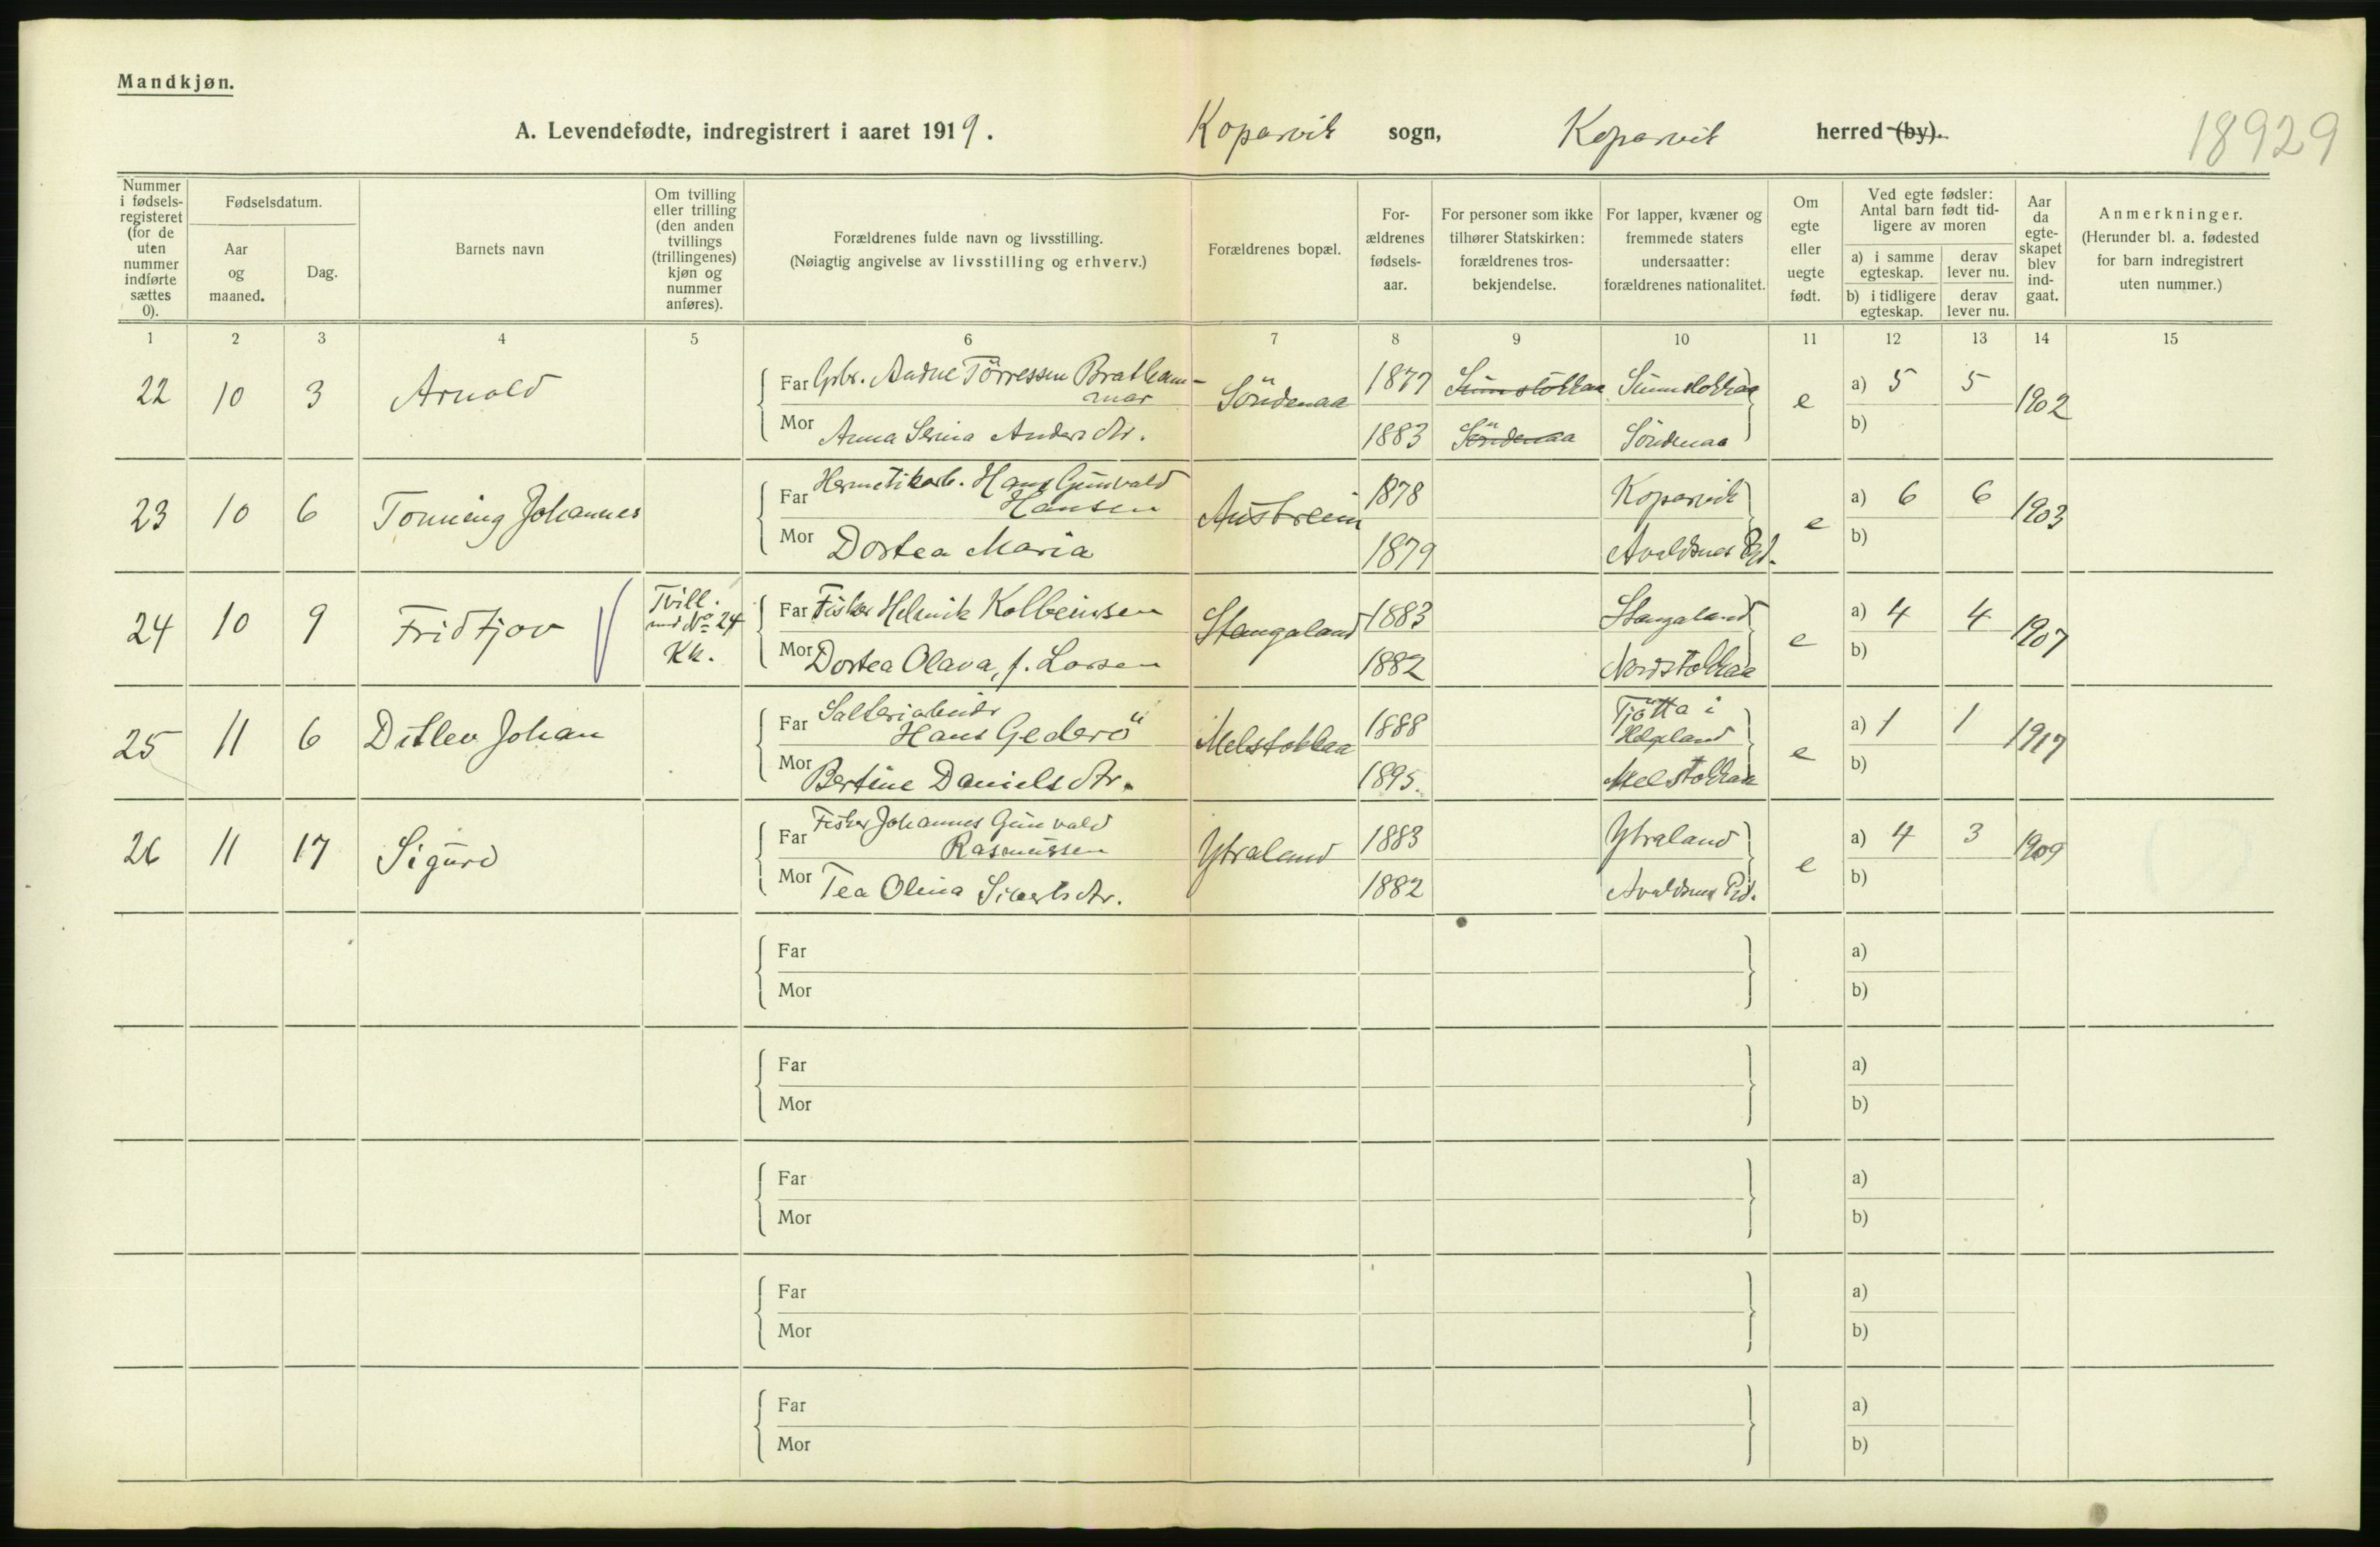 Mandkjøn.
A. Levendefødte, indregistrert i aaret 1919. Kopervik sogn, Kopervik herred (by).
18929
Nummer i fødsels-registeret (for de uten nummer indførte sættes 0).
Fødselsdatum.
Aar og maaned.
Dag.
Barnets navn
Om tvilling eller trilling (den anden tvillings (trillingenes) kjøn og nummer anføres).
Forældrenes fulde navn og livsstilling.
(Nøiagtig angivelse av livsstilling og erhverv.)
Forældrenes bopæl.
For-ældrenes fødsels-aar.
For personer som ikke tilhører Statskirken: forældrenes tros-bekjendelse.
For lapper, kvæner og fremmede staters undersaatter: forældrenes nationalitet.
Om egte eller uegte født.
Ved egte fødsler: Antal barn født tid-ligere av moren
a) i samme egteskap.
derav lever nu.
b) i tidligere egteskap.
derav lever nu.
Aar da egte-skapet blev ind-gaat.
Anmerkninger.
(Herunder bl. a. fødested for barn indregistrert uten nummer.)
1 2 3 4 5 6 7 8 9 10 11 12 13 14 15
22 10 3 Arnold Far Grbr. Andne Törressen Brathammar Söndenaa 1877 Sunnstokkaa Sunnstokkaa e a) 5 5 1902
Mor Anna Serina Andersdtr. 1883 Söndenaa Söndenaa b)
23 10 6 Tonning Johannes Far Hermetikarb. Hans Gunvald Hansen Austreim 1878 Kopervik e a) 6 6 1903
Mor Dortea Maria 1879 Avaldsnes Pgd. b)
24 10 9 Fridtjov Tvill. med No 24 Kk. Far Fisker Helmik Kolbeinsen Stangaland 1883 Stangaland e a) 4 4 1907
Mor Dortea Olava, f. Larsen 1882 Nordstokkaa b)
25 11 6 Ditlev Johan Far Salteriarbeider Hans Gederö Melstokkaa 1888 Tjötta i Helgeland e a) 1 1 1917
Mor Bertine Danielsdtr. 1895. Melstokkaa b)
26 11 17 Sigurd Far Fisker Johannes Gunvald Rasmussen Ytraland 1883 Ytraland e a) 4 3 1909
Mor Tea Olina Sivertsdtr. 1882 Avaldsnes Pgd. b)
Far a)
Mor b)
Far a)
Mor b)
Far a)
Mor b)
Far a)
Mor b)
Far a)
Mor b)